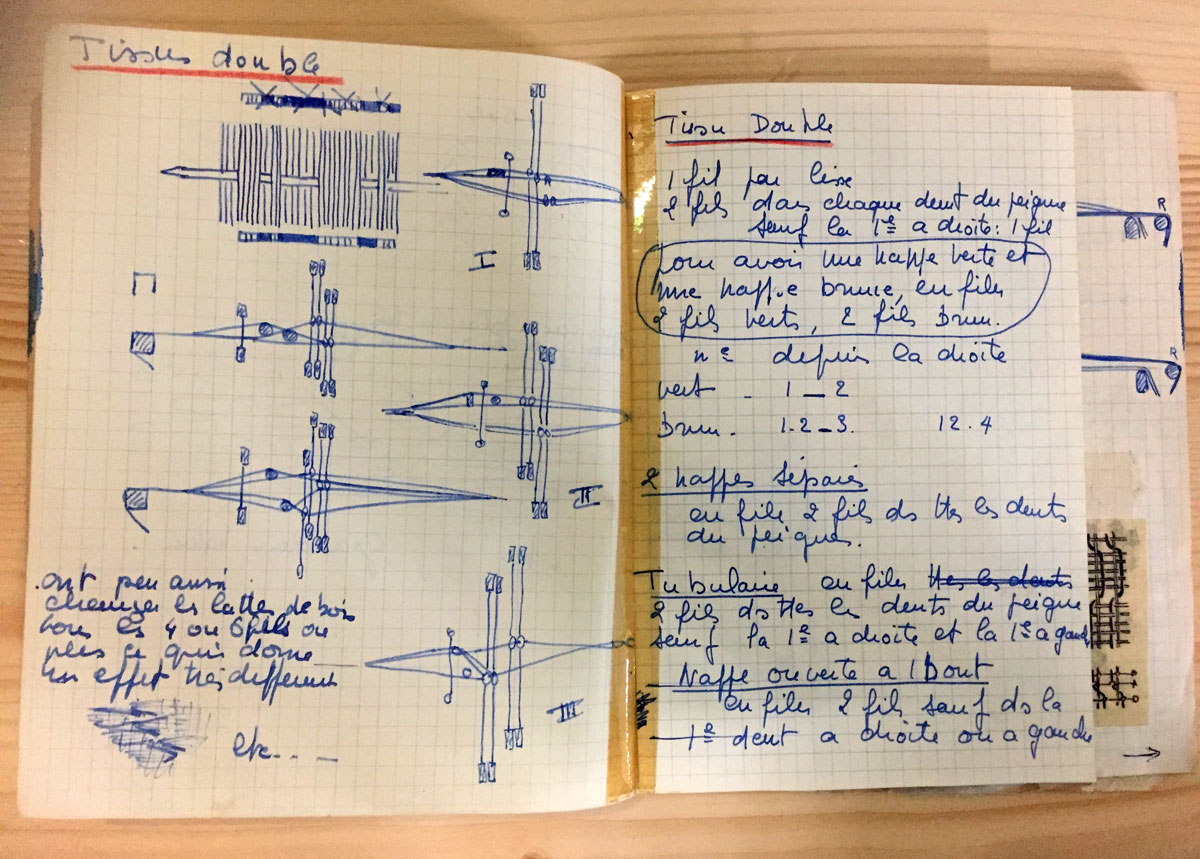 Tissus double
I
II
III
ont peu aussi
changer les lattes de bois
tous les 4 ou 6 fils ou
plus ce qui donne
un effet très différent
etc....
Tissu Double
1 fil par lisse
2 fils dans chaque dent du peigne
sauf la 1e a droite: 1 fil
pour avoir une nappe verte et
une nappe brune, en filer
2 fils verts, 2 fils brun.
n° depuis la droite
vert - 1 _ 2
brun - 1.2 _ 3. 12.4
2 nappes séparées
en file 2 fils ds ttes les dents
du peigne.
Tubulaire en filer ttes les dents
2 fils ds ttes les dents du peigne
sauf la 1e a droite et la 1e a gauche
Nappe ouverte a 1 Bout
en filer 2 fils sauf ds la
1e dent a droite ou a gauche
R
R